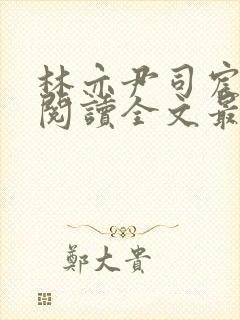 林亦尹司宸
閱讀全文最
鄭大貴